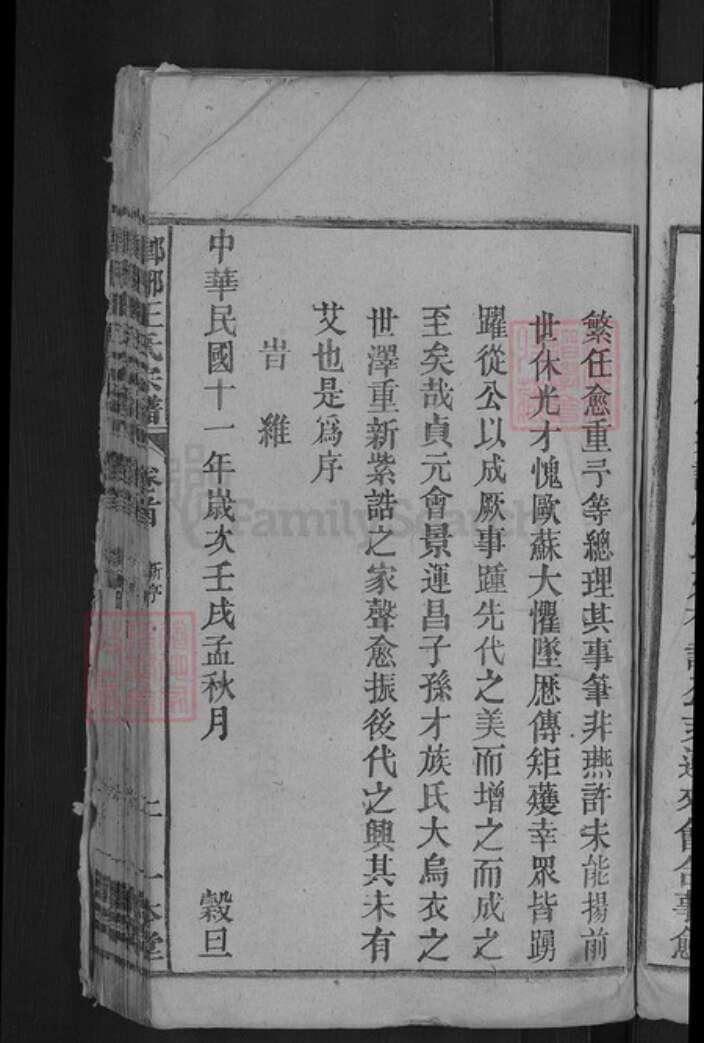 繁任愈重予等總理其事筆非燕許未能揚前
世休光才愧歐蘇大懼墜厯傳矩蒦幸眾皆踴
躍從公以成厥事踵先代之美而增之而成之
至矣哉貞元會景運昌子孫才族氏大烏衣之
世澤重新紫誥之家聲愈振後代之興其未有
艾也是爲序
旹維
中華民國十一年歲次壬戌孟秋月 穀旦
瑯琊王氏宗譜 卷首 新序 一本堂
FamilySearch